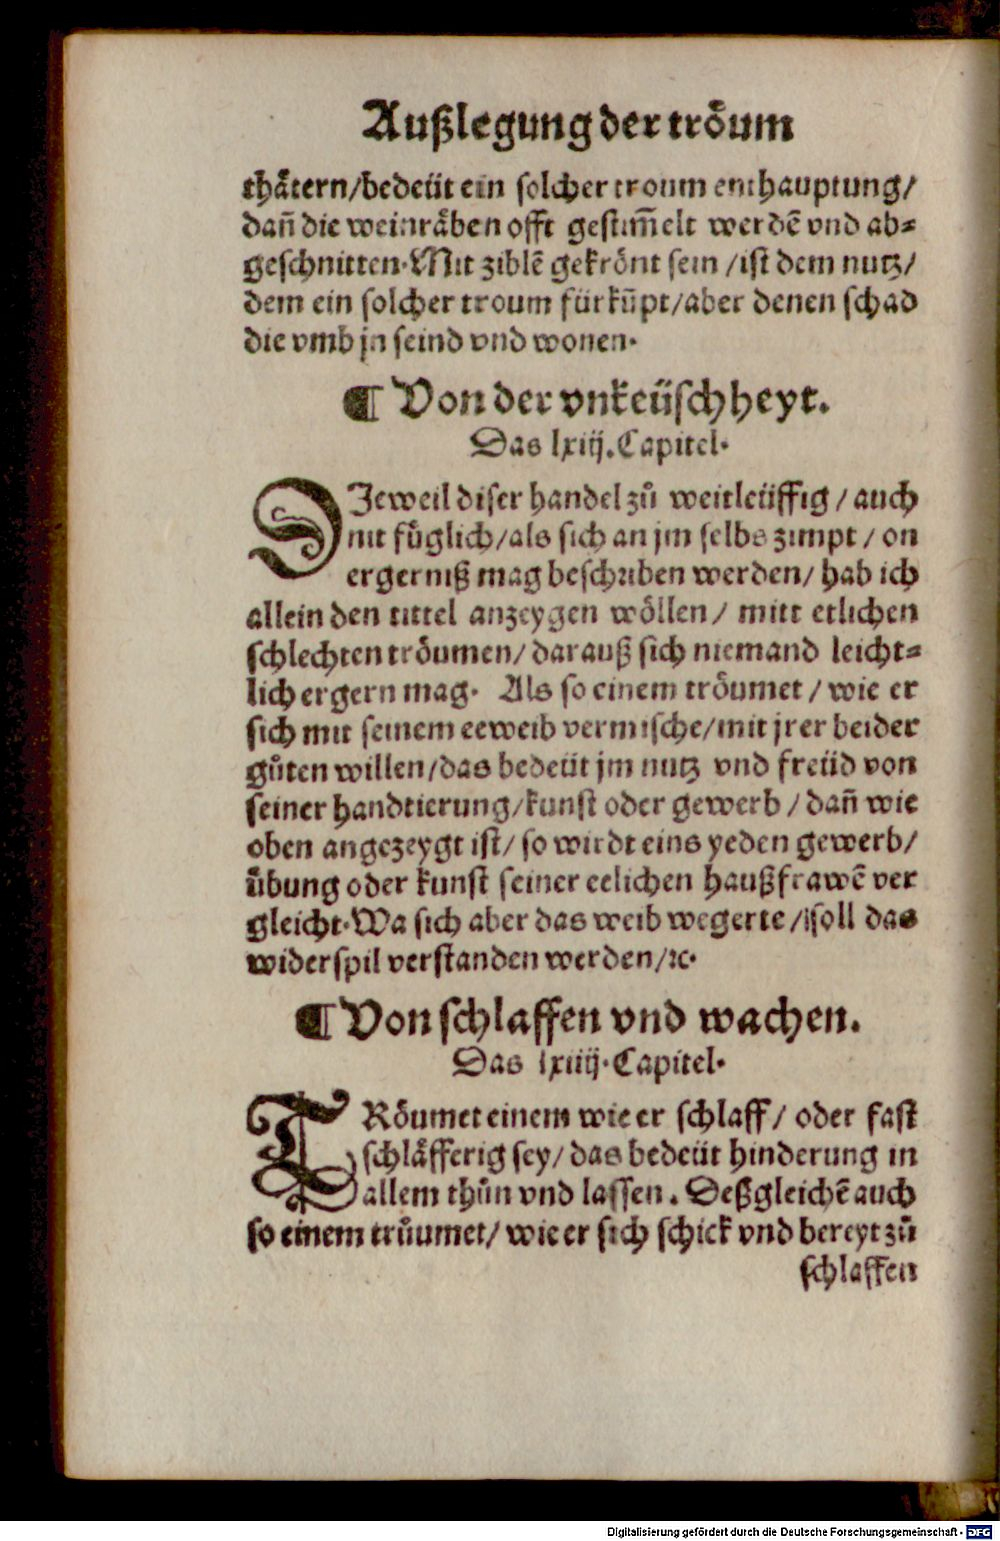 Außlegung der tröum
thätern/bedeüt ein solcher troum enthauptung/
dañ die weinräben offt gestim̄elt werdẽ vnd ab⸗
geschnitten. Mit ziblẽ gekrönt sein /ist dem nutz/
dem ein solcher troum fürkūpt/aber denen schad
die vmb jn seind vnd wonen.
¶ Von der vnkeüschheyt.
Das lxiij. Capitel.
DJeweil diser handel zů weitleüffig / auch
nit füglich/als sich an jm selbs zimpt / on
ergerniß mag beschriben werden/ hab ich
allein den tittel anzeygen wöllen/ mitt etlichen
schlechten tröumen/darauß sich niemand leicht⸗
lich ergern mag. Als so einem tröumet / wie er
sich mit seinem eeweib vermische/mit jrer beider
gůten willen/das bedeüt jm nutz vnd freüd von
seiner handtierung/kunst oder gewerb / dañ wie
oben angezeygt ist/ so wirdt eins yeden gewerb/
übung oder kunst seiner eelichen haußfrawẽ ver
gleicht. Wa sich aber das weib wegerte /soll das
widerspil verstanden werden/ꝛc.
¶ Von schlaffen vnd wachen.
Das lxiiij. Capitel.
TRöumet einem wie er schlaff/ oder fast
schläfferig sey/ das bedeüt hinderung in
allem thůn vnd lassen. Deßgleichẽ auch
so einem trůumet/ wie er sich schick vnd bereyt zů
schlaffen
Digitalisierung gefördert durch die Deutsche Forschungsgemeinschaft - DFG